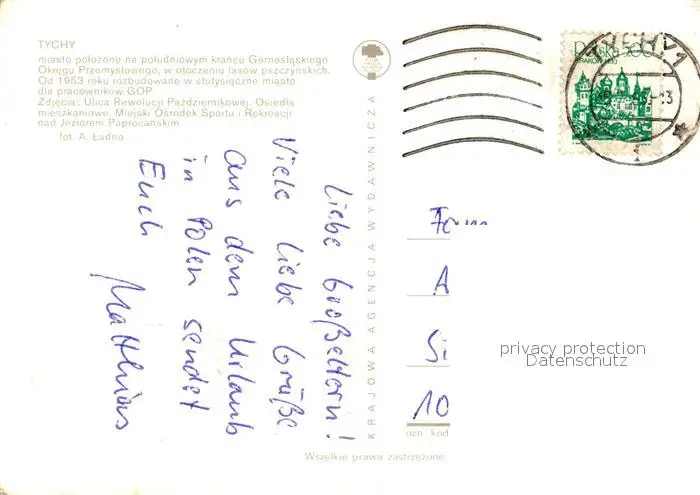 TYCHY
miasto położone na południowym krańcu Górnośląskiego
Okręgu Przemysłowego, w otoczeniu lasów pszczyńskich.
Od 1953 roku rozbudowane w stutysięczne miasto
dla pracowników GOP
Zdjęcia: Ulica Rewolucji Październikowej. Osiedla
mieszkaniowe. Miejski Ośrodek Sportu i Rekreacji
nad Jeziorem Paprocańskim
fot. A. Ładno
Liebe Großeltern!
Viele liebe Grüße
aus dem Urlaub
in Polen sendet
Euch
Matthias
KRAJOWA AGENCJA WYDAWNICZA
Polska 500
TYCHY 1
A
Si
10
ozn kod
Wszelkie prawa zastrzeżone
privacy protection
Datenschutz